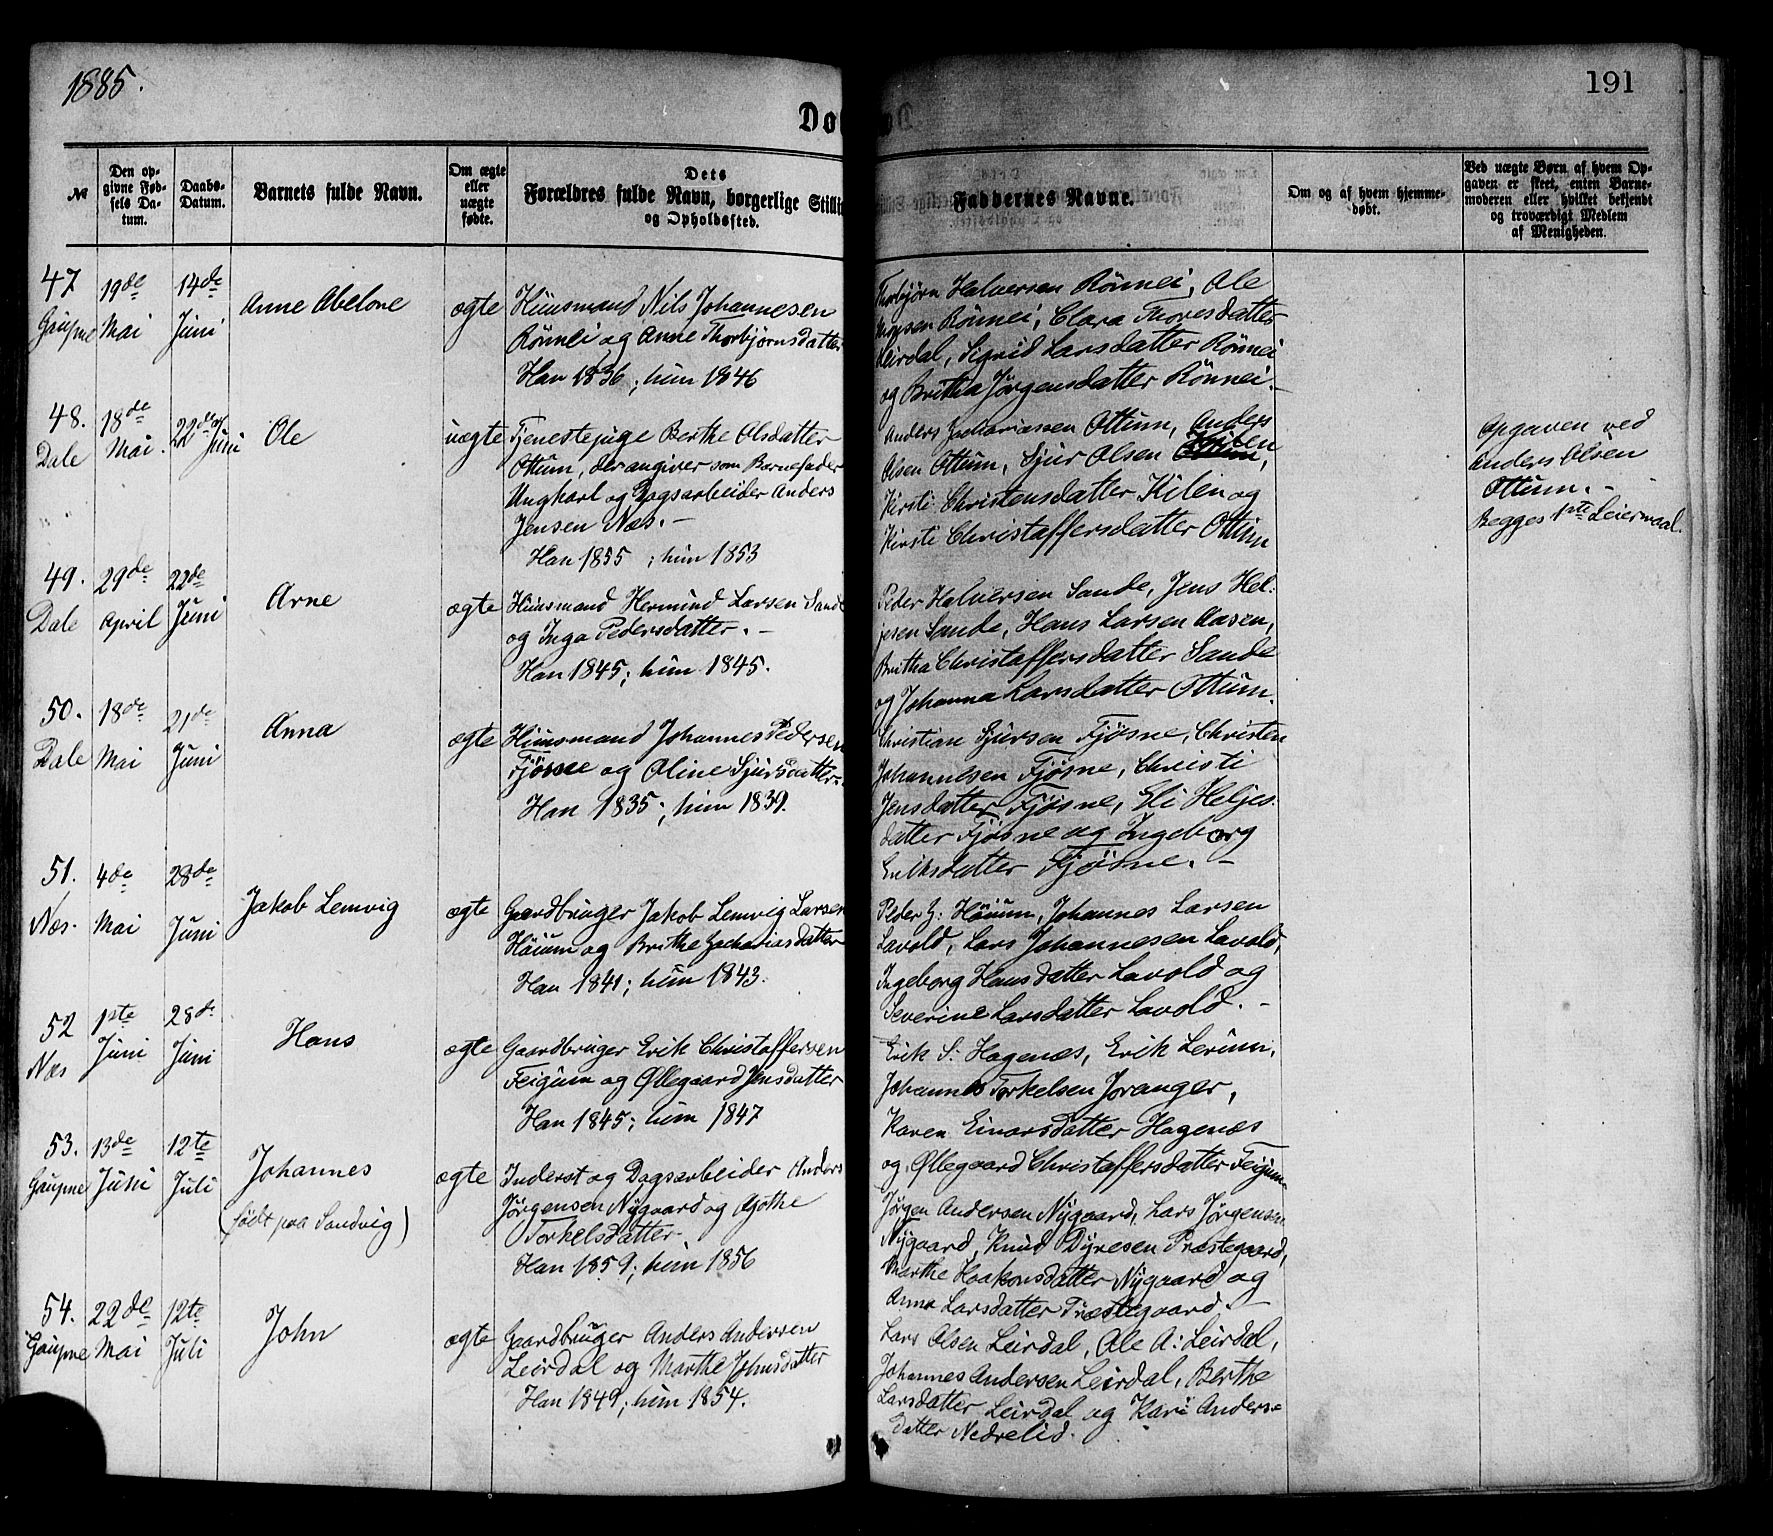 1885.
191
Døb
№
Den op-
givne Fød-
sels Da-
tum.
Daabs-
Datum.
Barnets fulde Navn.
Om ægte
eller
uægte
fødte.
Dets
Forældres fulde Navn, borgerlige Stilli
og Opholdssted.
Faddernes Navne.
Om og af hvem hjemme-
døbt.
Ved uægte Børn af hvem Op-
gaven er skeet, enten Barne-
moderen eller hvilket bekjendt
og troværdigt Medlem
af Menigheden.
47
Gaupne
19de
Mai
14de
Juni
Anne Abelone
ægte
Huusmand Nils Johannesen
Rønnei og Anne Thorbjørnsdatter
Han 1836; hun 1846
Thorbjørn Halversen Rønnei, Ole
Rønnei, Clara Thoresdatter
Leirdal, Sigrid Larsdatter Rønnei
og Britha Jørgensdatter Rønnei.
48.
Dale
18de
Mai.
22de
Juni
Ole
uægte
Tjenestepige Berthe Olsdatter
Ottum, der angiver som Barnefader
Ungkarl og Dagsarbeider Anders
Jensen Næs. -
Han 1855; hun 1853
Anders Zachariassen Ottum, Anders
Olsen Ottum, Sjur Olsen Kilen,
Kirsti Christensdatter Kilen og
Kirsti Christaffersdatter Ottum
Opgaven ved
Anders Olsen
Ottum. -
Begges 1ste Leiermaal.
49.
Dale
29de
April
22de
Juni
Arne
ægte
Huusmand Hermund Larsen Sande
og Inga Pedersdatter. -
Han 1845; hun 1845.
Peder Halversen Sande, Jens Hel-
jesen Sande, Hans Larsen Aasen,
Britha Christaffersdatter Sande
og Johanna Larsdatter Ottum.
50.
Dale
18de
Mai
21de
Juni
Anna
ægte
Huusmand Johannes Pedersen
Fjøsne og Oline Sjursdatter.
Han 1835; hun 1839.
Christian Sjursen Fjøsne, Christen
Johannesen Fjøsne, Christi
Jensdatter Fjøsne, Eli Heljes-
datter Fjøsne og Ingeborg
Eriksdatter Fjøsne. -
51.
Næs.
4de
Mai
28de
Juni
Jakob Lemvig
ægte
Gaardbruger Jakob Lemvig Larsen
Høium og Brithe Zachariasdatter
Han 1841; hun 1843.
Peder Z: Høium, Johannes Larsen
Lavold, Lars Johannesen Lavold,
Ingeborg Hansdatter Lavold og
Severine Larsdatter Lavold. -
52
Næs
1ste
Juni
28de
Juni
Hans
ægte
Gaardbruger Erik Christaffersen
Feigum og Øllegaard Jensdatter
Han 1845; hun 1847
Erik S: Hagenæs, Erik Lerum,
Johannes Torkelsen Joranger,
Karen Einarsdatter Hagenæs
og Øllegaard Christaffersdatter Feigum.
53.
Gaupne
13de
Juni
12te
Juli
Johannes
(født paa Sandvig)
ægte
Inderst og Dagsarbeider Anders
Jørgensen Nygaard og Agothe
Torkelsdatter
Han 1859; hun 1856
Jørgen Andersen Nygaard, Lars Jørgensen
Nygaard, Knud Dyresen Præstegaard,
Marthe Haakonsdatter Nygaard og
Anna Larsdatter Præstegaard. -
54.
Gaupne
22de
Mai
12te
Juli
John
ægte
Gaardbruger Anders Andersen
Leirdal og Marthe Johnsdatter
Han 1849; hun 1854.
Lars Olsen Leirdal, Ole A: Leirdal,
Johannes Andersen Leirdal, Berthe
Larsdatter Leirdal og Kari Anders-
datter Nedrelid.